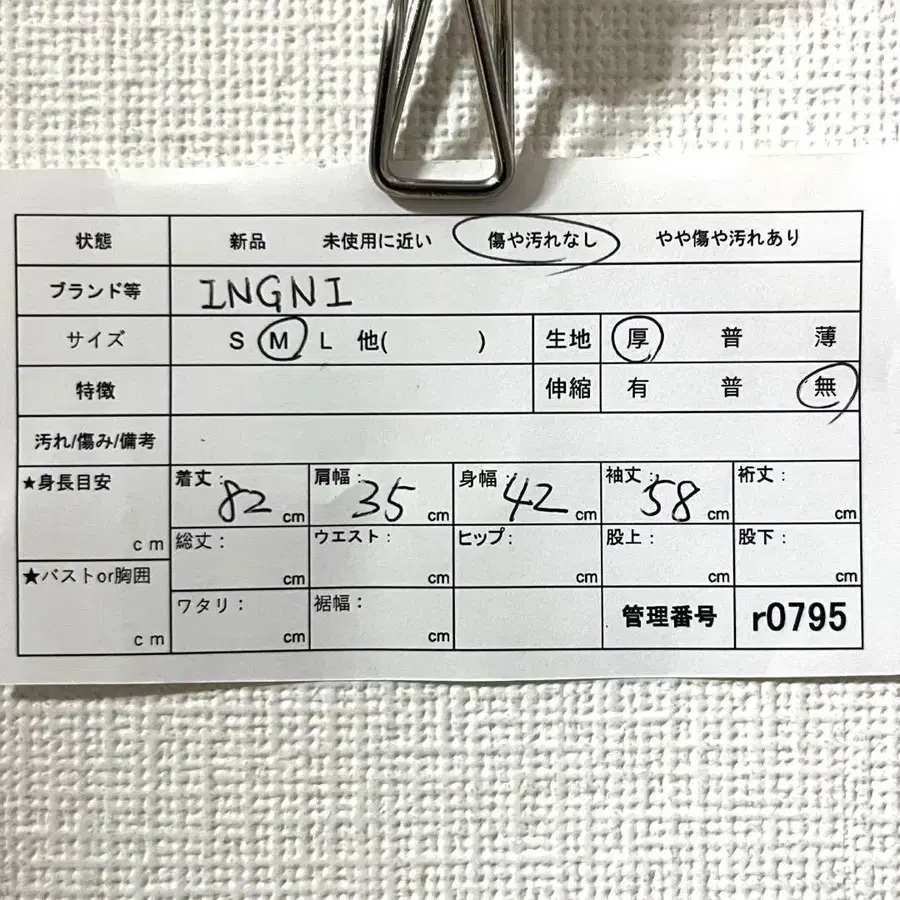 状態 新品 未使用に近い 傷や汚れなし やや傷や汚れあり
ブランド等 INGNI
サイズ S M L 他( ) 生地 厚 普 薄
特徴 伸縮 有 普 無
汚れ/傷み/備考
★身長目安 cm 着丈: 82 cm 肩幅: 35 cm 身幅: 42 cm 袖丈: 58 cm 裄丈: cm
総丈: cm ウエスト: cm ヒップ: cm 股上: cm 股下: cm
★バストor胸囲 cm ワタリ: cm 裾幅: cm 管理番号 r0795